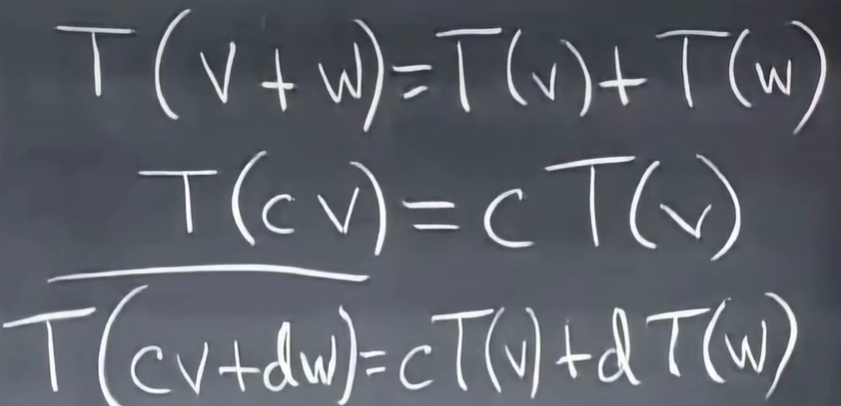 T(v+w)=T(v)+T(w)
T(cv)=cT(v)
T(cv+dw)=cT(v)+dT(w)